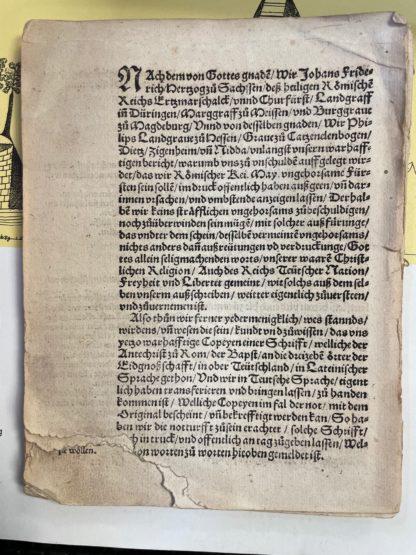 NAch dem von Gottes gnadē/ Wir Johans Fride-
rich Hertzog zů Sachssen/ deß heiligen Römische
Reichs Ertzmarschalck/ vnnd Churfürst/ Landgraff
in Düringen/ Marggraff zů Meissen/ vnd Burggraue
zů Magdeburg/ Vnnd von desselben gnaden/ Wir Phi-
lips Landgraue zů Hessen/ Graue zů Catzenelenbogen/
Dietz/ Zigenheim/ vñ Nidda/ vnlangst vnsern warhaff-
tigen bericht/ warumb vns zů vnschuld auffgelegt wir-
der/ das wir Römischer Kei. May. vngehorsame Für-
sten sein sollē/ im druck offentlich haben außgeen/ vñ dar-
innen vrsachen/ vnd vmbstende anzeigen lassen/ Derhal-
be wir keins sträfflichen vngehorsams zů beschuldigen/
noch zů überwinden sein mügē/ mit solcher außfürunge/
das vnder dem schein/ desselbē vermeintē vngehorsams/
nichts anders dañ außreütungen vñ verdruckunge/ Got
tes allein seligmachenden worts/ vnserer waarē Christ-
lichen Religion/ Auch des Reichs Teütscher Nation/
Freyheit vnd Libertet gemeint/ wie solchs auß dem sel-
ben vnserm außschreiben/ weitter eigentlich zů versteen
vnd zů vernemen ist.
Also thůn wir ferner yedermenigklich/ wes stannds/
wirdens/ vñ wesen die sein/ kundt vnd zů wissen/ das vns
yetzo warhafftige Copeyen einer Schrifft/ welliche der
Antechrist zů Rom/ der Bapst/ an die dreizehē örter der
Eidgnoßschafft/ in ober Teütschland/ in Lateinischer
Sprache gethon/ Vnd wir in Teutsche Sprache/ eigent
lich haben transferieren vnd bringen lassen/ zů handen
kommen ist/ Welliche Copeyen im fal der not/ mit dem
Original bescheint/ vñ bekrefftigt werden kan/ So ha-
ben wir die notturfft zů sein erachtet/ solche Schrifft/
ch in truck/ vnd offentlich an tag zů geben lassen/ Wel-
on worten zů worten hieoben gemeldet ist.
wöllen.